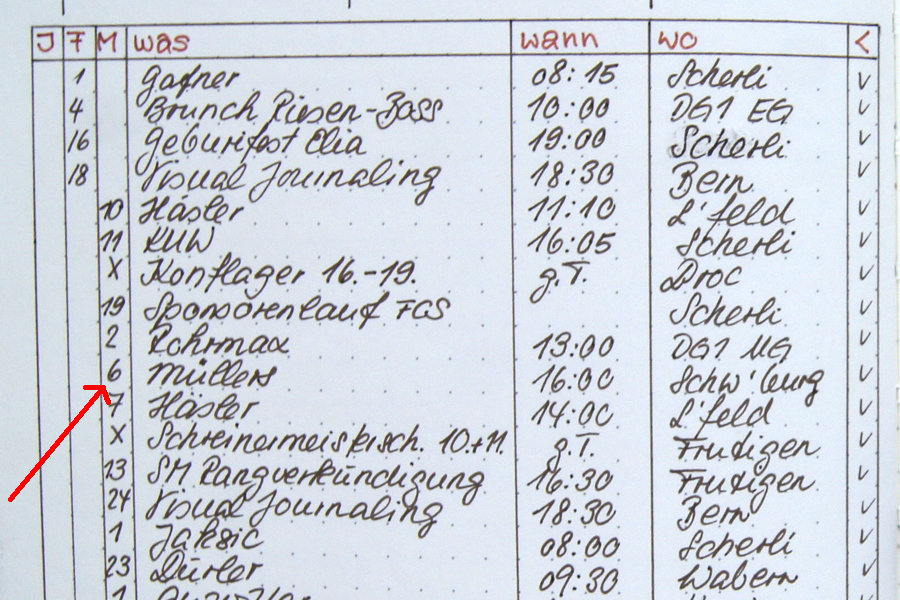 J F M was wann wo <
1 Gafner 08:15 Scherli v
4 Brunch Riesen-Boss 10:00 DG1 EG v
16 Geburifest Elia 19:00 Scherli v
18 Visual Journaling 18:30 Bern v
10 Häsler 11:10 L'feld v
11 KUW 16:05 Scherli v
X Konflager 16.-19. g.T. Droc v
19 Sponsorenlauf FGS Scherli v
2 Rohrmax 13:00 DG1 UG v
6 Müllers 16:00 Schw'burg v
7 Häsler 14:00 L'feld v
X Schreinermeistersch. 10.+11. g.T. Frutigen v
23 SM Rangverkündigung 16:30 Frutigen v
24 Visual Journaling 18:30 Bern v
1 Jaksic 08:00 Scherli v
23 Dürler 09:30 Wabern v
1